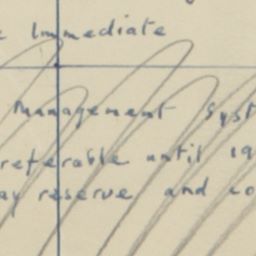 Immediate
Management Syst
referable until 19
ay reserve and co